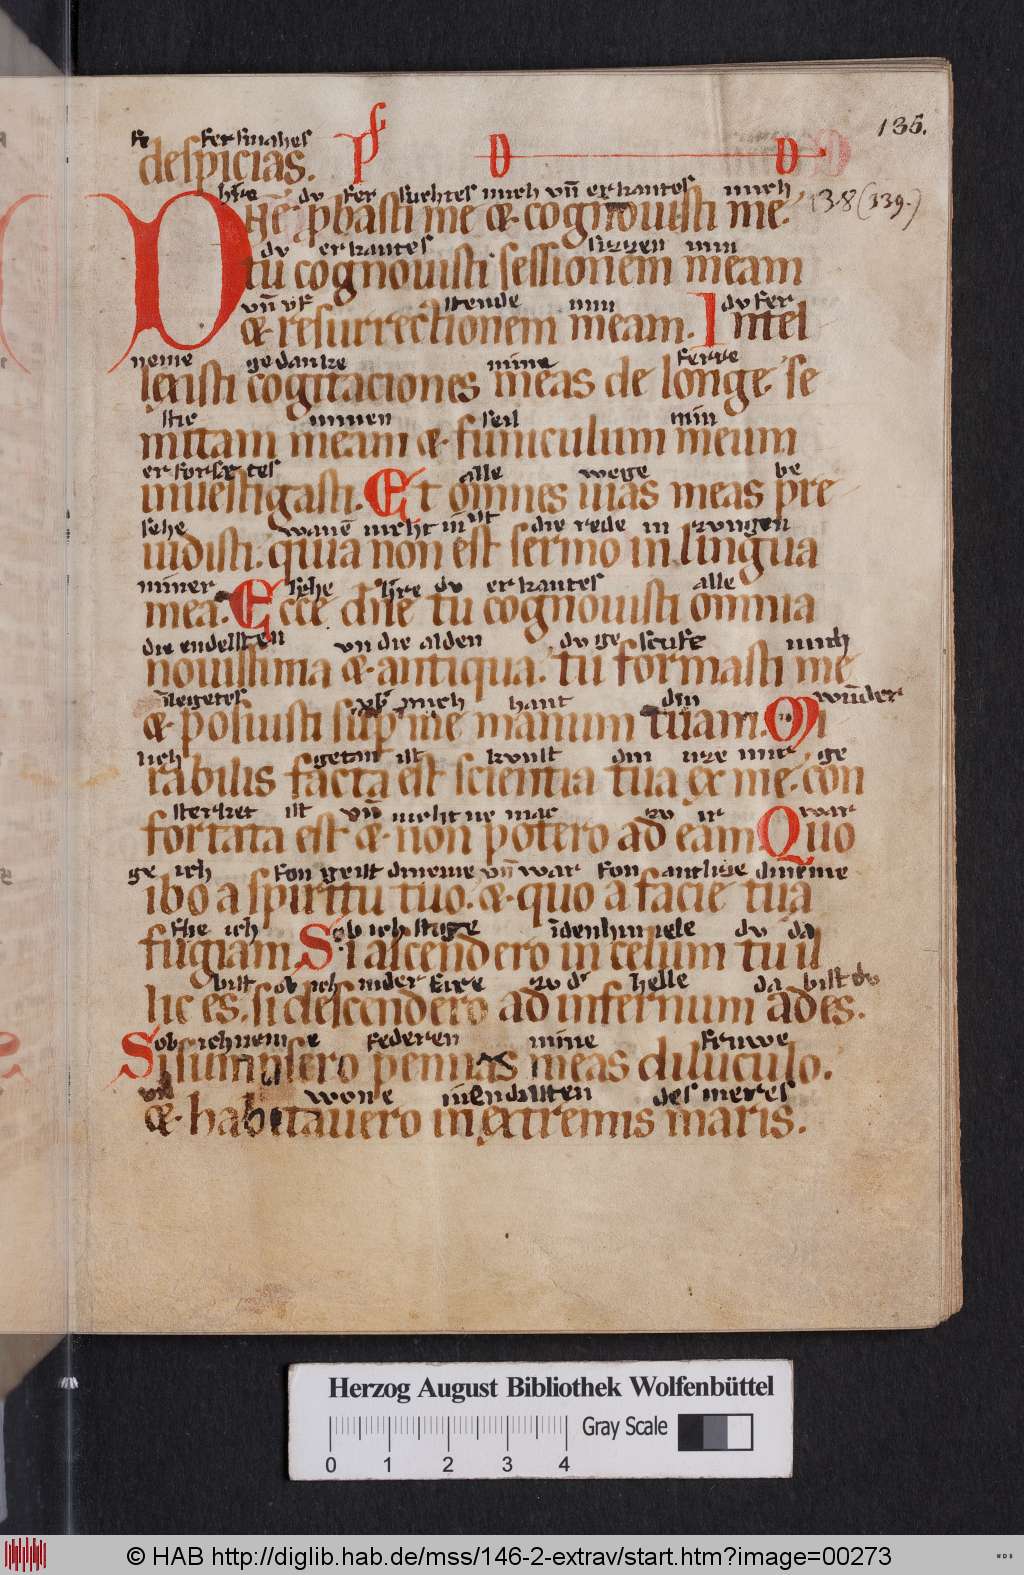 135.
fe fersmahes
despicias. Ps D D
h're du fer suchtes mich vn̄ erkantes mich
Dn̄e pbasti me & cognouisti me. 138 (139.)
du erkantes sizzen min
tu cognouisti sessionem meam
vn̄ vf stende min du fer
& resurrectionem meam. Intel
neme gedanke mine ferre
lexisti cogitaciones meas de longe se
stie minen seil min
mitam meam & funiculum meum
er forsc tes alle wege be
inuestigasti. Et omnes uias meas pre
sehe wanē nicht īn ist die rede in zvngen
uidisti. quia non est sermo in lingua
miner sihe h're du erkantes alle
mea. Ecce dn̄e tu cognouisti omnia
die endelisten vn die alden du ge scufe mich
nouissima & antiqua. tu formasti me
legetes vb' mich hant din wn̄der
& posuisti sup me manum tuam. Mi
lich getan ist kvnst din uze mir ge
rabilis facta est scientia tua ex me. con
sterket ist vn̄ nicht ne mac zv ir war
fortata est & non potero ad eam. Quo
ge ich fon geist dineme vn̄ war fon antlize dineme
ibo a spiritu tuo. & quo a facie tua
flie ich ob ich stige īden himiele du da
fugiam. Si ascendero in celum tu il
bist ob ich nider kere zo d' helle da bist du
lic es. si descendero ad infernum ades.
ob ich neme federen mine fruwe
Si sumpsero pennas meas diluculo.
vn̄ wone in endilisten des meres
& habitauero in extremis maris.
Herzog August Bibliothek Wolfenbüttel
Gray Scale
0 1 2 3 4
© HAB http://diglib.hab.de/mss/146-2-extrav/start.htm?image=00273